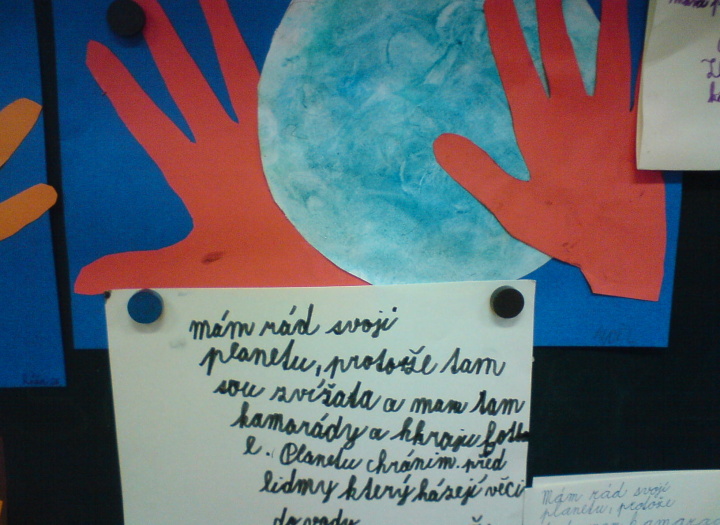 mám rád svoji
planetu, protože tam
sou zvížata a mam tam
kamarády a hkraju fotba
l. Planetu chráním před
lidmy který házejí věci
do vody
Mám rád svoji
planetu, protože
kamara